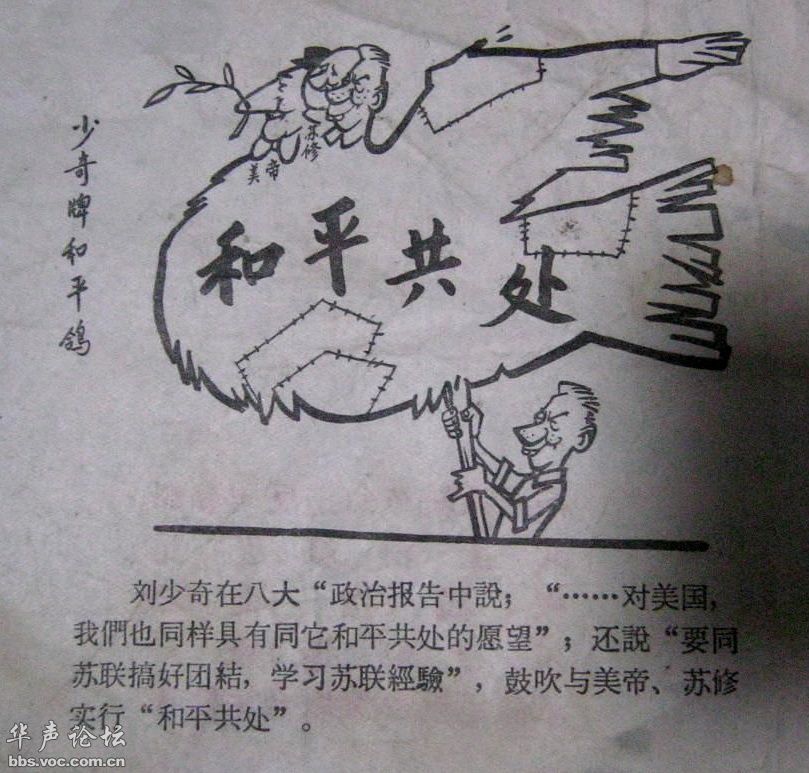 少奇牌和平鸽
美帝
苏修
和平共处
刘少奇在八大“政治报告中說；“……对美国，
我們也同样具有同它和平共处的愿望”；还說“要同
苏联搞好团結，学习苏联經驗”，鼓吹与美帝、苏修
实行“和平共处”。
华声论坛
bbs.voc.com.cn